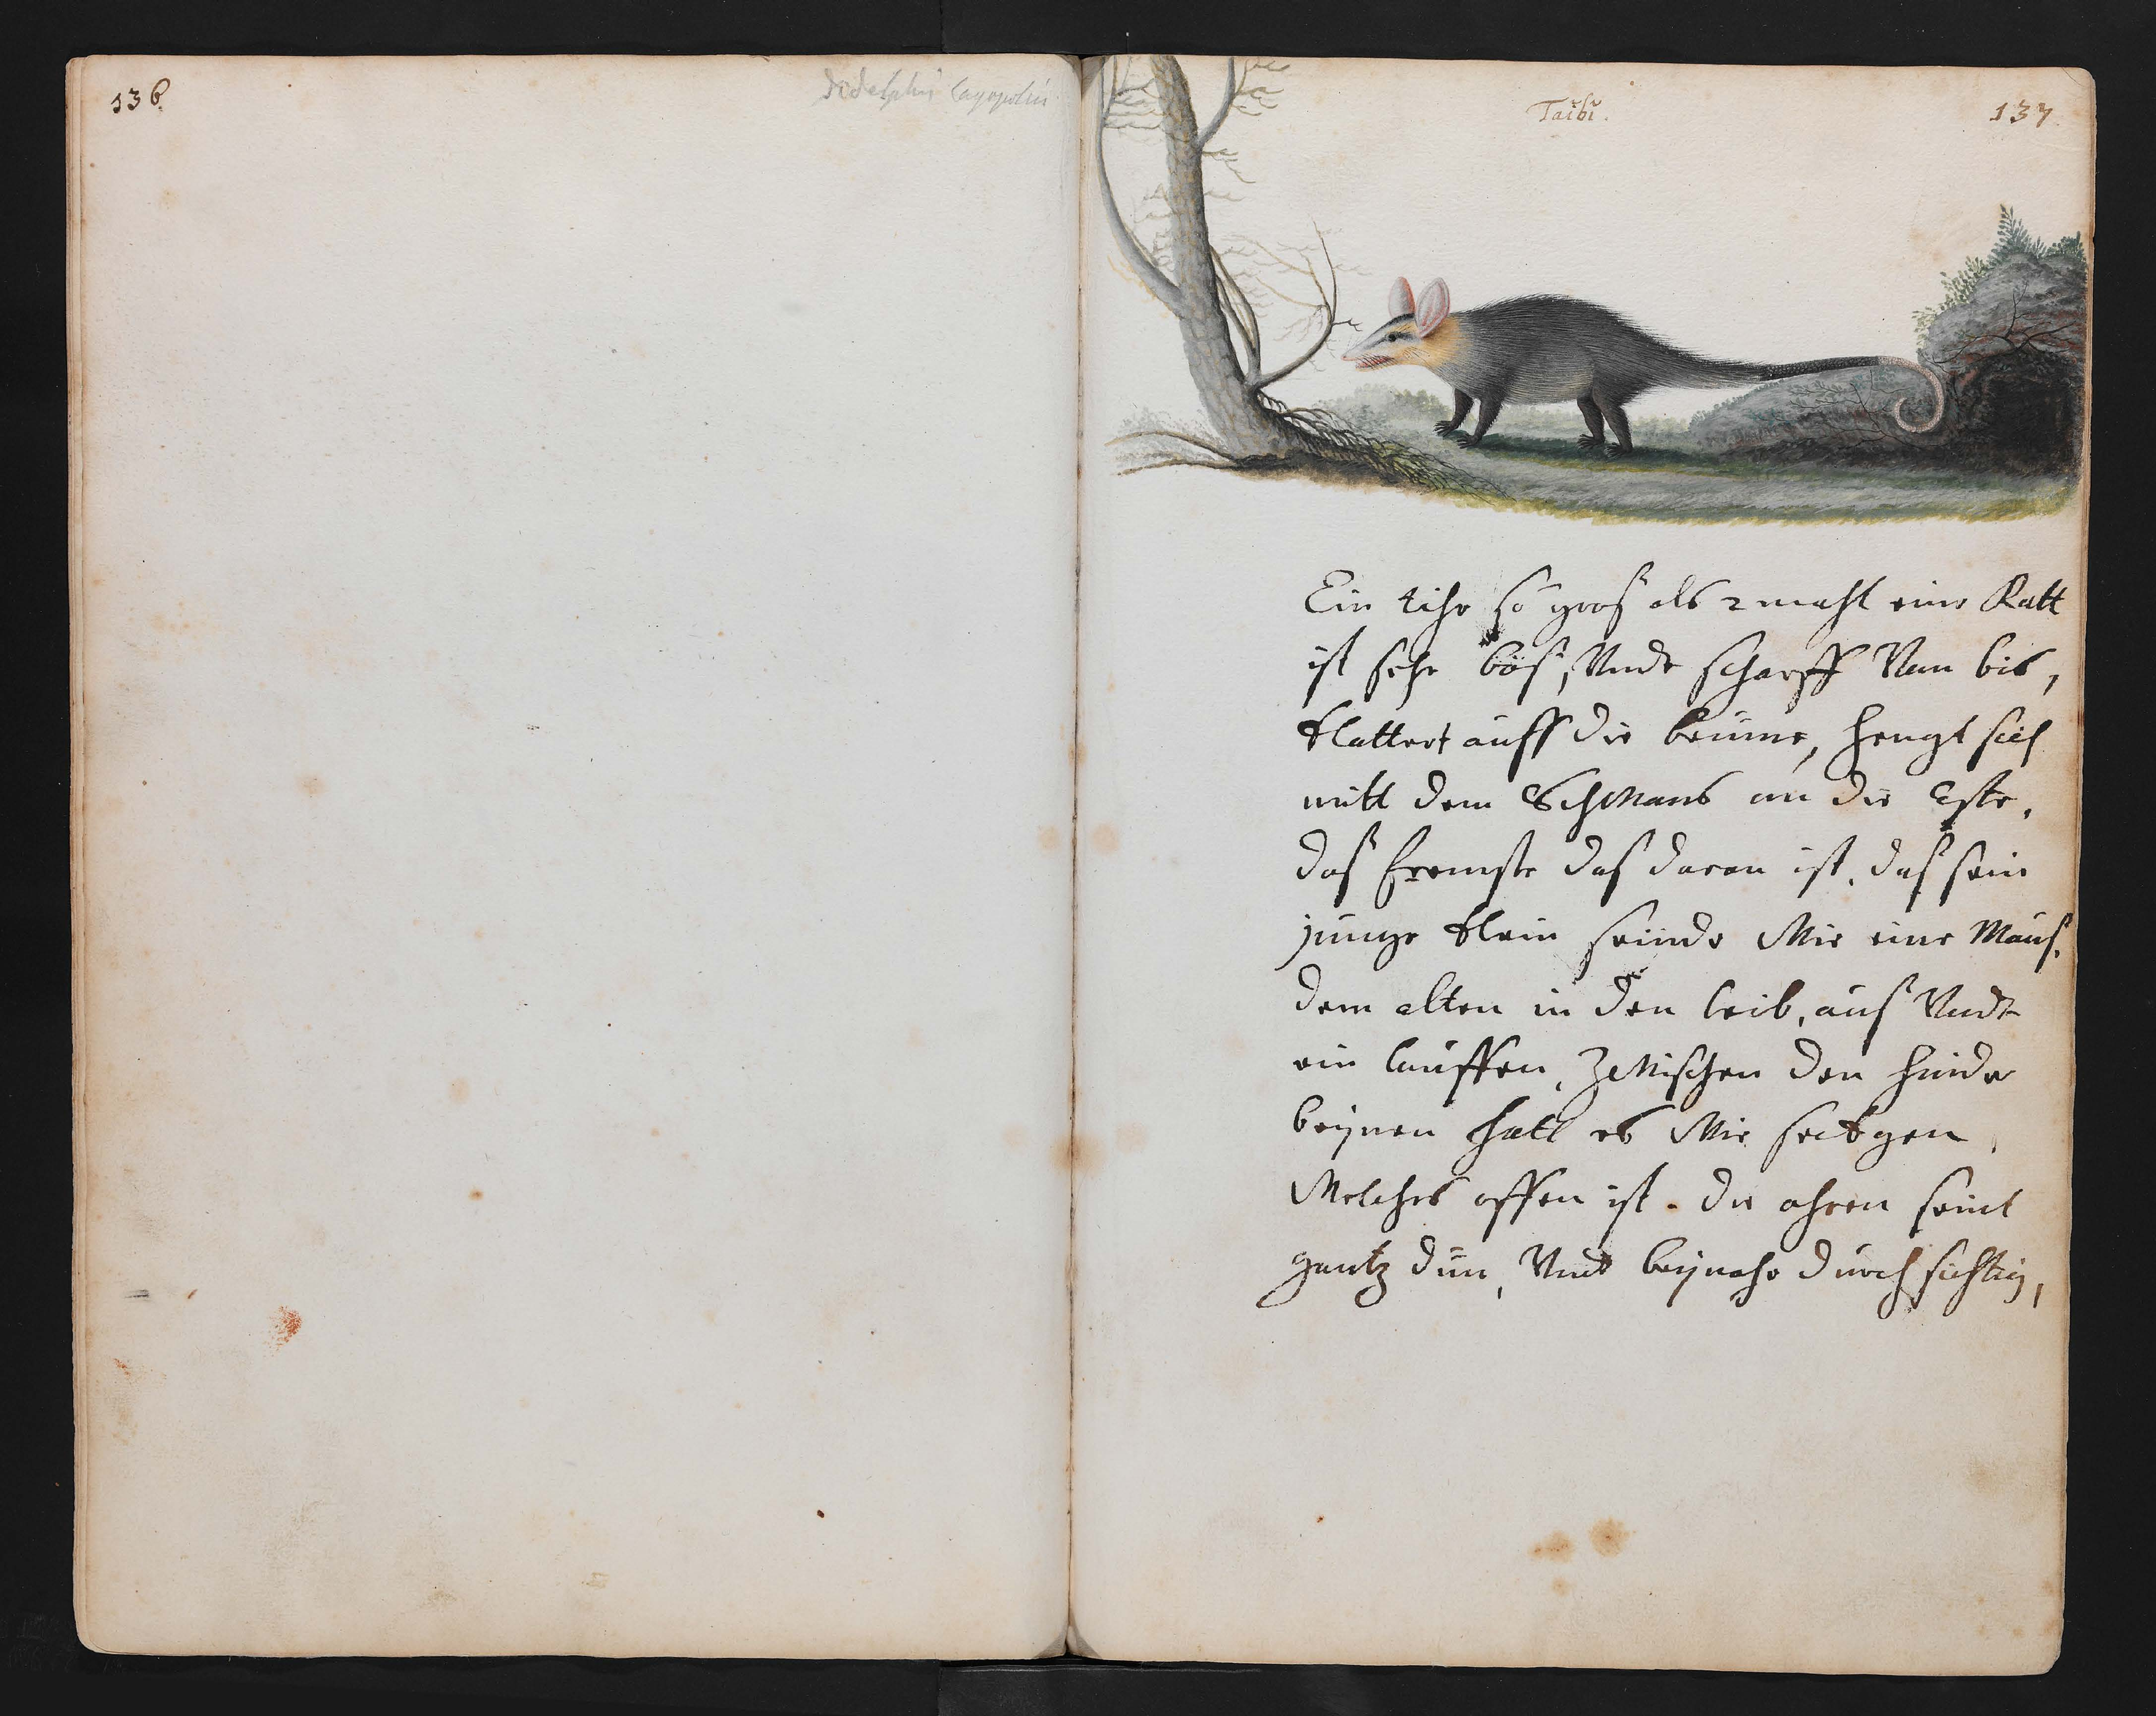 136.
Taibi.
137
Ein tihr so gros als 2 mahl eine Ratt
ist sehr bös, Undt scharff Van bis,
klattert auff die beume, hengt sich
mitt dem Schwans an die Este,
das fremste das daran ist, das sein
junge klein seinde Wie eine Maus.
dem alten in den leib, aus Undt
ein lauffen, Zwischen den hinder
beijnen hatt es Wie seckgen,
Welches offen ist. die ohren seint
gantz dün, Undt beijnahe durchsichtig,